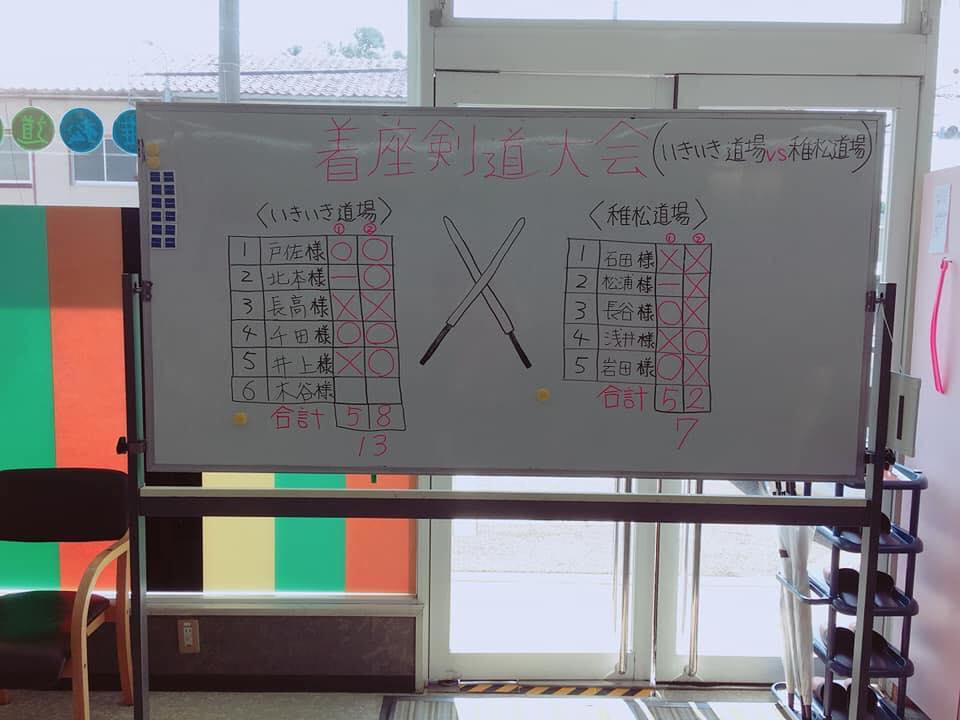 着座剣道大会(いきいき道場vs稚松道場)
〈いきいき道場〉
① ②
1 戸佐様 ○ ○
2 北本様 一 ○
3 長高様 × ×
4 千田様 ○ ○
5 井上様 × ○
6 木谷様
合計 5 8
13
〈稚松道場〉
① ②
1 石田様 × ×
2 松浦様 一 ×
3 長谷様 ○ ×
4 浅井様 × ○
5 岩田様 ○ ×
合計 5 2
7
道